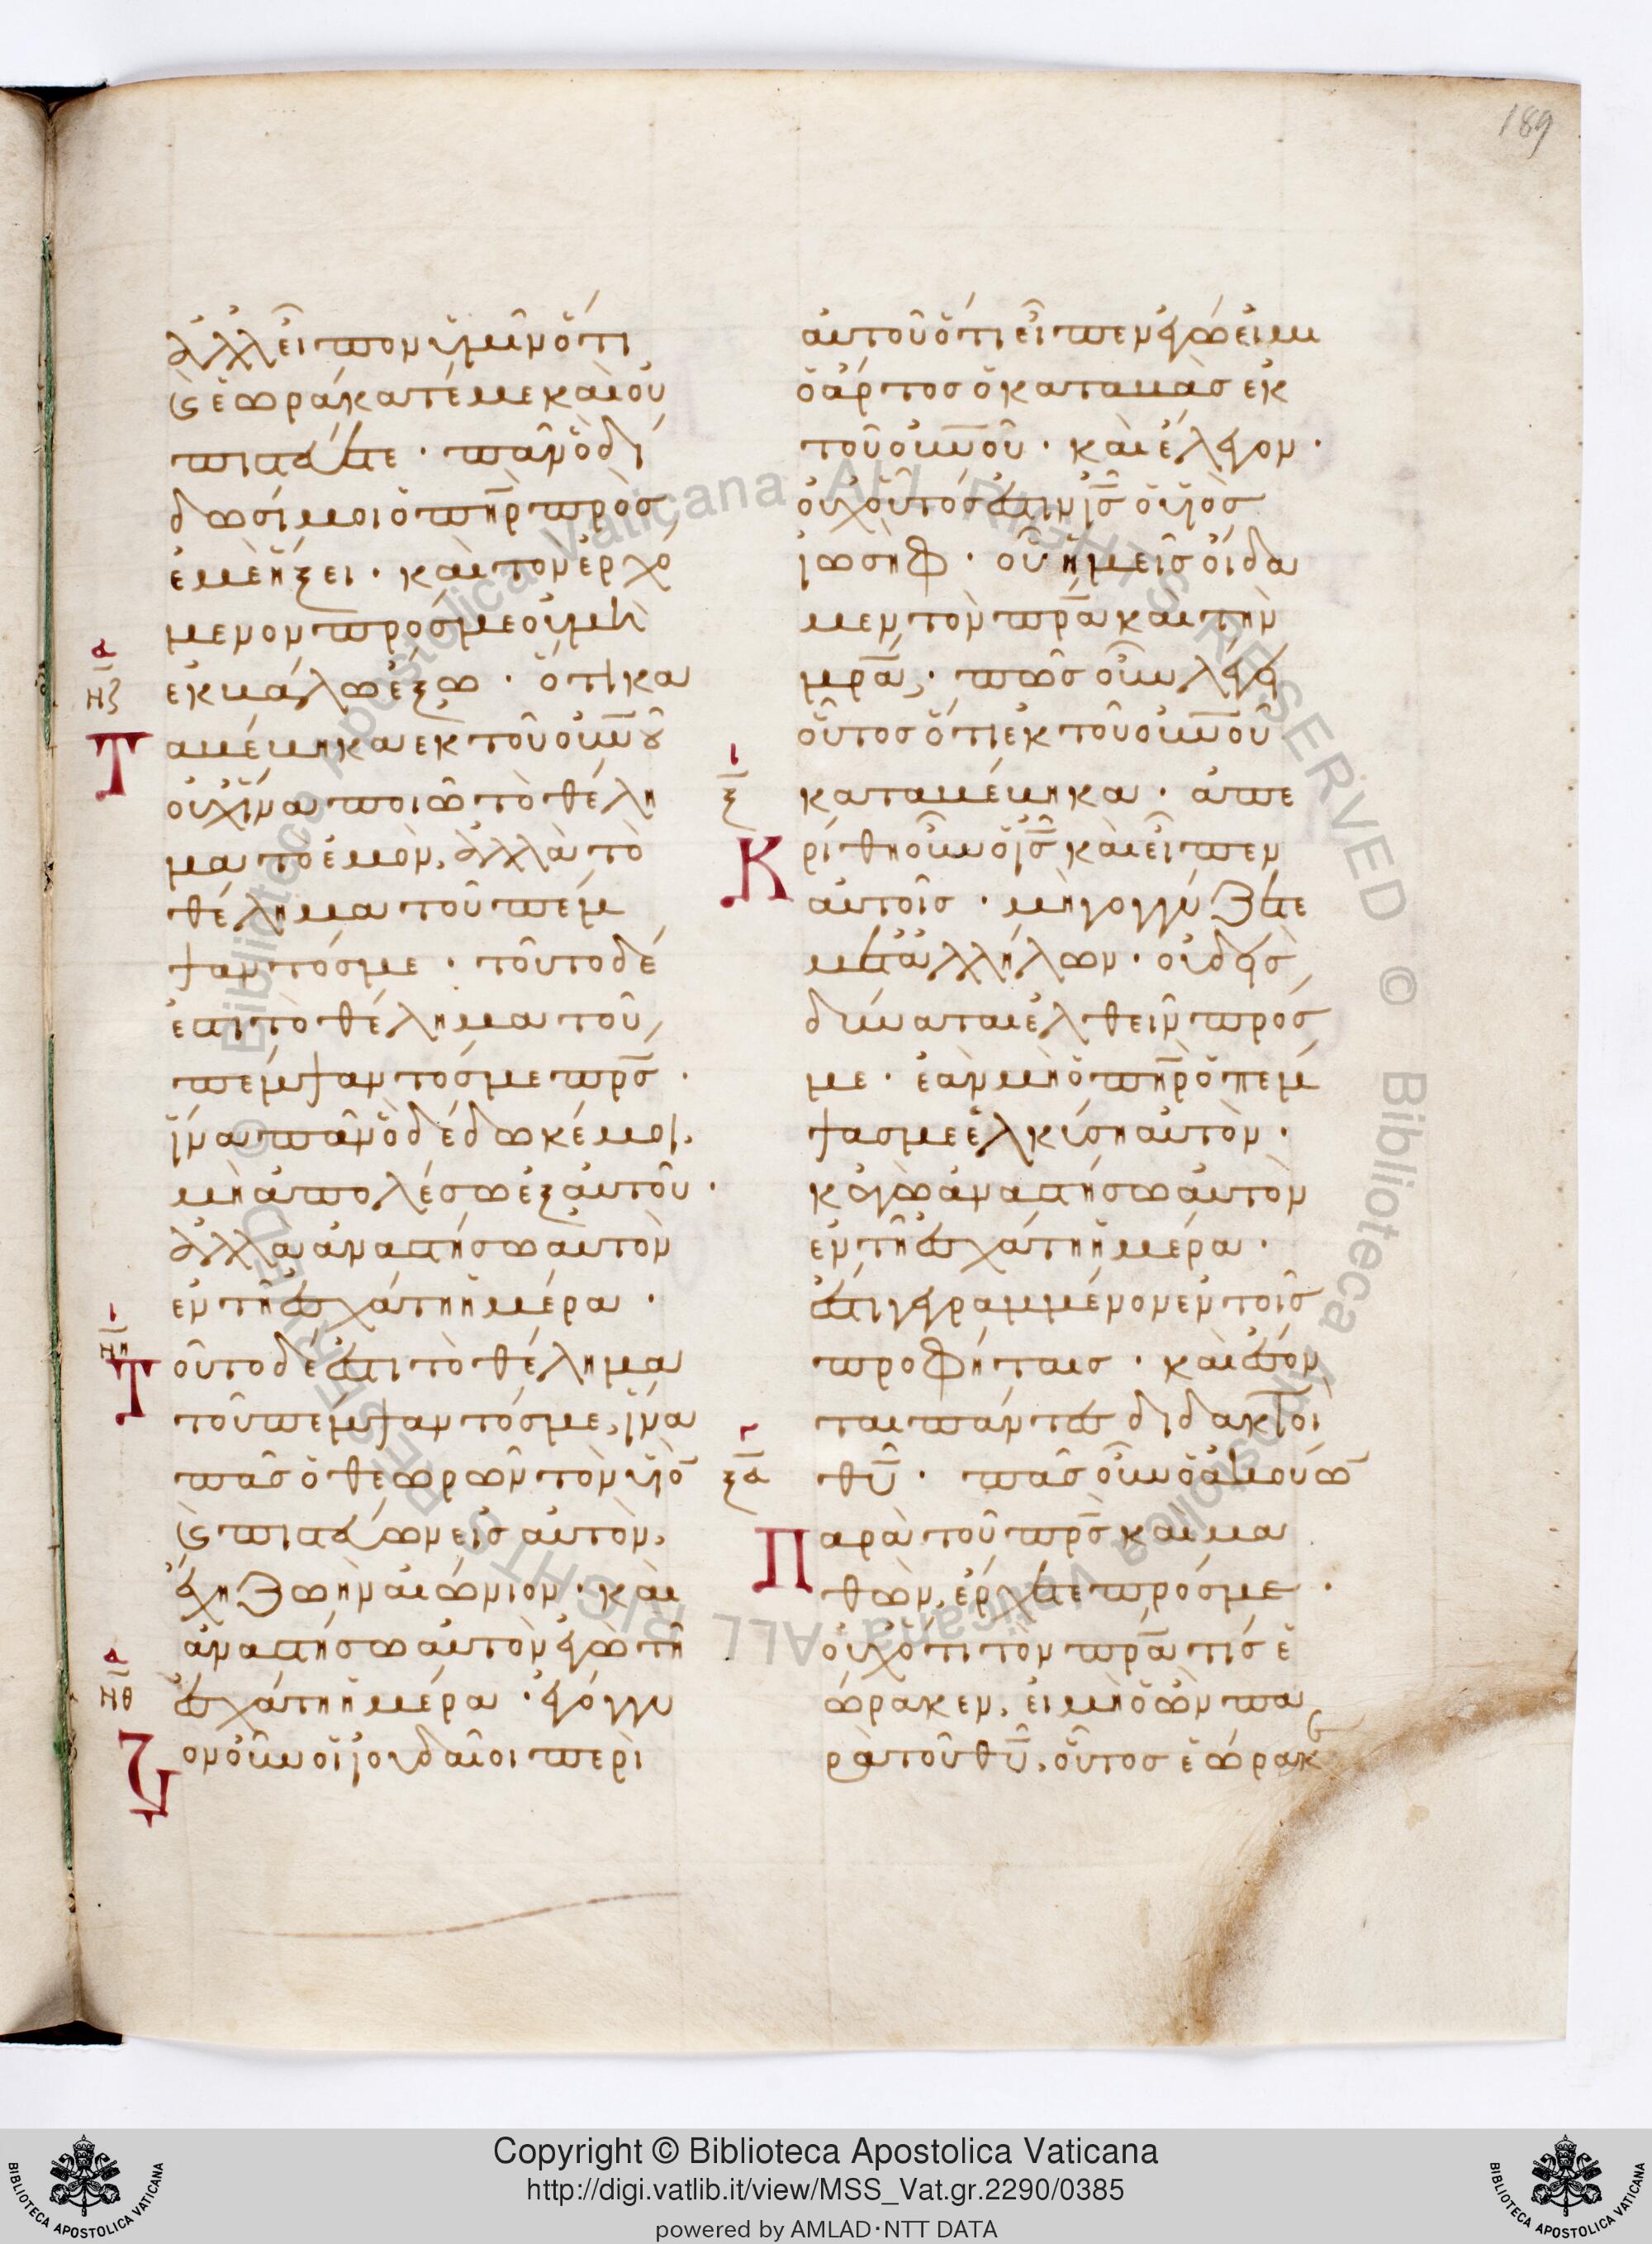 189
ἀλλ' εἶπον ὑμῖν ὅτι
ϗ ἑωράκατέ με καὶ οὐ
πιστεύετε · πᾶν ὃ δί
δωσί μοι ὁ πηρ πρὸς
ἐμὲ ἥξει · καὶ τὸν ἐρχό
μενον πρός με οὐ μὴ
ἐκβάλω ἔξω · ὅτι κα
α
νζ
Ταβέβηκα ἐκ τοῦ οὐνου
οὐχ ἵνα ποιῶ τὸ θέλη
μα τὸ ἐμὸν, ἀλλὰ τὸ
θέλημα τοῦ πέμ
ψαντός με · τοῦτο δέ
ἐστι τὸ θέλημα τοῦ
πέμψαντός με πρς ·
ἵνα πᾶν ὃ δέδωκέ μοι,
μὴ ἀπολέσω ἐξ αὐτοῦ ·
ἀλλὰ ἀναστήσω αὐτὸν
ἐν τῇ ἐσχάτῃ ἡμέρα ·
ι
νη
Τοῦτο δέ ἐστι τὸ θέλημα
τοῦ πέμψαντός με, ἵνα
πᾶς ὁ θεωρῶν τὸν υἱὸ
ϗ πιστεύων εἰς αὐτὸν,
ἔχῃ ζωὴν αἰώνιον · καὶ
ἀναστήσω αὐτὸν ἐγὼ τῆ
α
νθ
ἐσχάτῃ ἡμέρα · ἐγόγγυ
Ζον οὖν οἱ ἰουδαῖοι περὶ
αὐτοῦ ὅτι εἶπεν ἐγώ εἰμι
ὁ ἄρτος ὁ καταβὰς ἐκ
τοῦ οὐνοῦ · καὶ ἔλεγον ·
οὐχ οὗτός ἐστιν ις ὁ υἱὸς
ἰωσὴφ · οὗ ἡμεῖς οἴδα
μεν τὸν πρα καὶ τὴν
μρα, · πῶς οὖν λέγει
οὗτος ὅτι ἐκ τοῦ οὐνοῦ
ι
ξ
καταβέβηκα · ἀπε
Κρίθη οὖν ὁ ις καὶ εἶπεν
αὐτοῖς · μὴ γογγύζετε
μετ' ἀλλήλων · οὐδεὶς
δύναται ἐλθεῖν πρός
με · ἐὰν μὴ ὁ πηρ ὁ πέμ
ψας με ἑλκύσῃ αὐτὸν ·
κἀγὼ ἀναστήσω αὐτὸν
ἐν τῇ ἐσχάτῃ ἡμέρα ·
ἔστι γεγραμμένον ἐν τοῖς
προφήταις · καὶ ἔσον
ται πάντες διδακτοὶ
γ
ξα
θυ · πᾶς οὖν ὁ ἀκούω
Παρὰ τοῦ πρς καὶ μα
θὼν, ἔρχεται πρός με ·
οὐχ ὅτι τὸν πρα τίς ἑ
ώρακεν, εἰ μὴ ὁ ὢν πα
ρὰ τοῦ θυ, οὗτος ἑώρακε
Copyright © Biblioteca Apostolica Vaticana
http://digi.vatlib.it/view/MSS_Vat.gr.2290/0385
powered by AMLAD·NTT DATA
BIBLIOTECA APOSTOLICA VATICANA
BIBLIOTECA APOSTOLICA VATICANA
© Biblioteca Apostolica Vaticana ALL RIGHTS RESERVED © Biblioteca Apostolica Vaticana ALL RIGHTS RESERVED